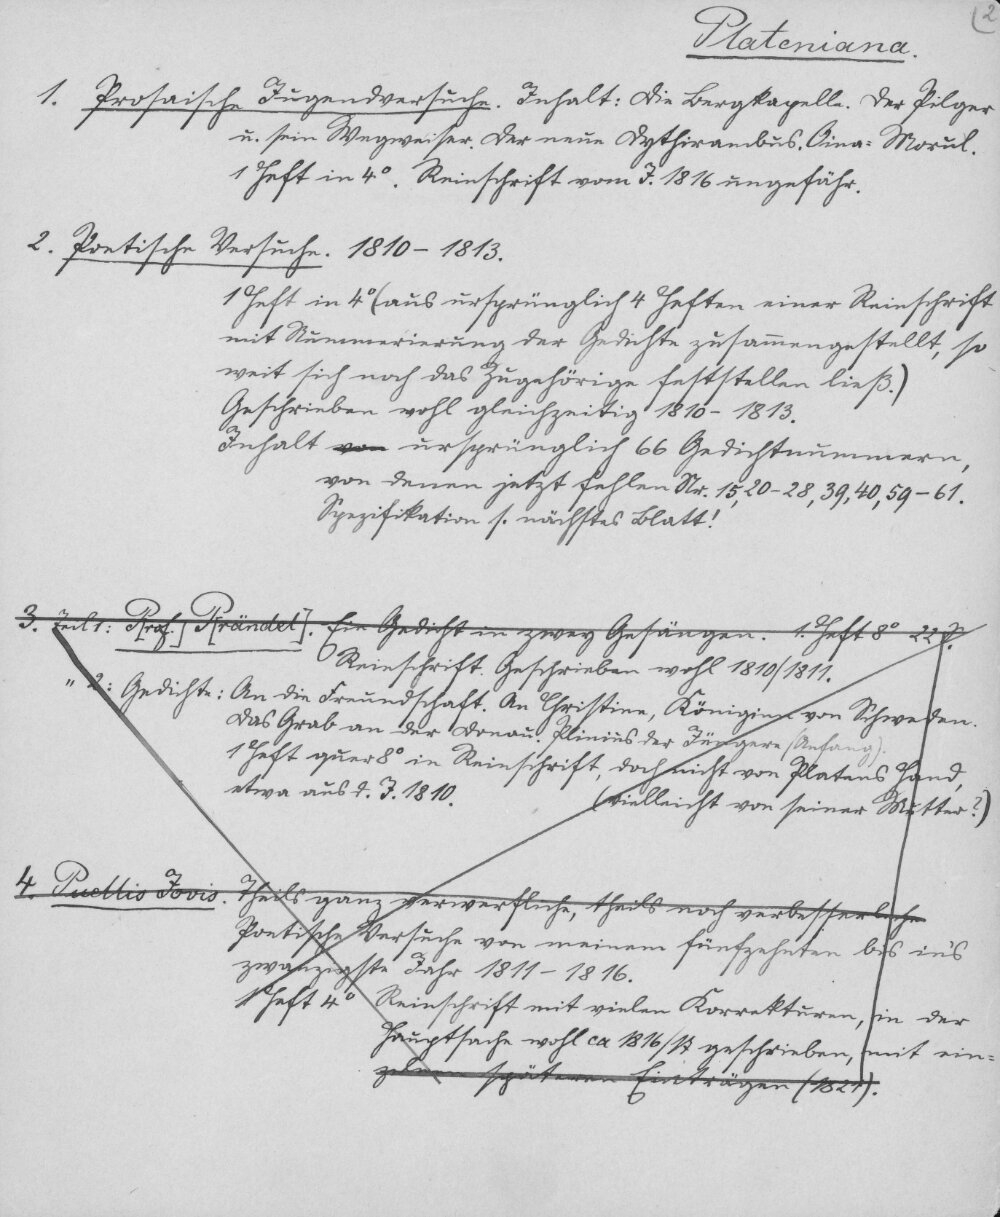 (2
Plateniana.
1. Prosaische Jugendversuche. Inhalt: Die Bergkapelle. Der Pilger
u. sein Wegweiser. Der neue Dythirambus. Oina-Morul.
1 Heft in 4°. Reinschrift vom J. 1816 ungefähr.
2. Poetische Versuche. 1810-1813.
1 Heft in 4° (aus ursprünglich 4 Heften einer Reinschrift
mit Nummerierung der Gedichte zusammengestellt, so
weit sich noch das Zugehörige feststellen ließ.)
Geschrieben wohl gleichzeitig 1810-1813.
Inhalt von ursprünglich 66 Gedichtnummern,
von denen jetzt fehlen Nr. 15, 20-28, 39, 40, 59-61.
Spezifikation s. nächstes Blatt!
3. Teil 1: P[rof.] P[rändel]. Ein Gedicht in zwey Gesängen. 1. Heft 8° 22 S.
Reinschrift. Geschrieben wohl 1810/1811.
" 2: Gedichte: An die Freundschaft. An Christine, Königinn von Schweden.
Das Grab an der Donau. Plinius der Jüngere (Anfang).
1 Heft quer 8° in Reinschrift, doch nicht von Platens Hand,
etwa aus d. J. 1810. (vielleicht von seiner Mutter?)
4. Puellis Jovis. Theils ganz verwerfliche, theils noch verbesserliche
Poetische Versuche von meinem fünfzehnten bis ins
zwanzigste Jahr 1811-1816.
1 Heft 4° Reinschrift mit vielen Korrekturen, in der
Hauptsache wohl ca 1816/17 geschrieben, mit ein-
zelnen späteren Einträgen (1821).